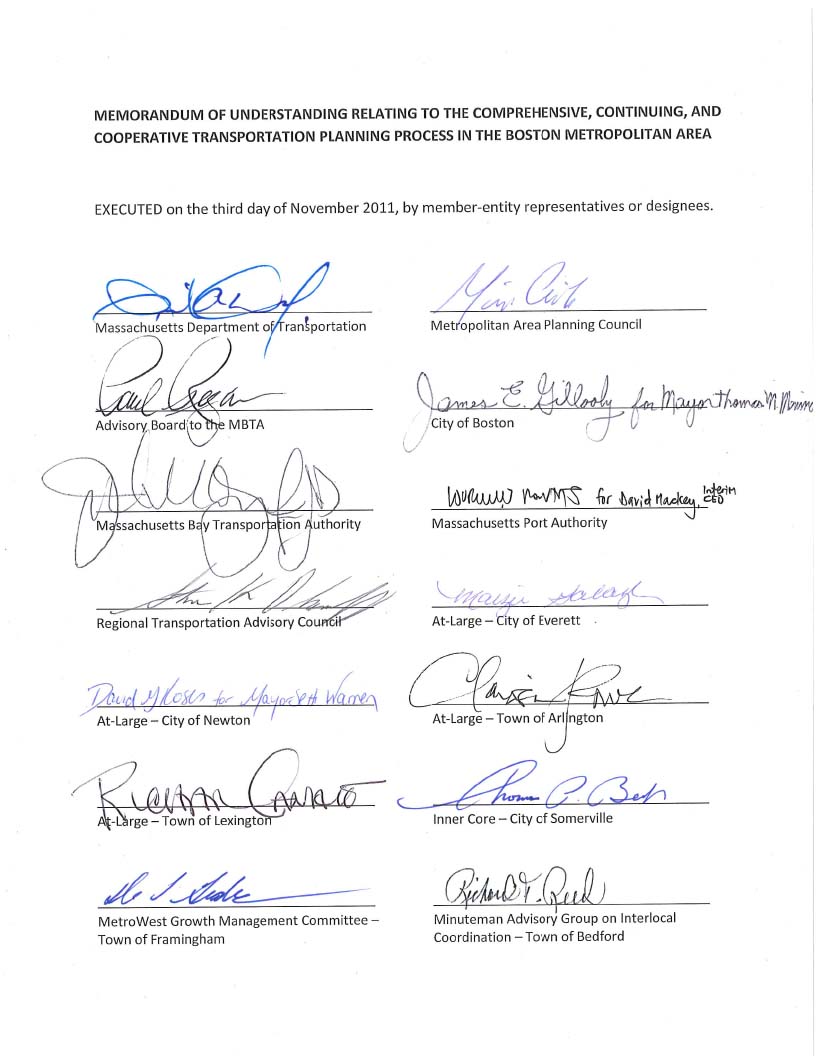 MEMORANDUM OF UNDERSTANDING RELATING TO THE COMPREHENSIVE, CONTINUING, AND
COOPERATIVE TRANSPORTATION PLANNING PROCESS IN THE BOSTON METROPOLITAN AREA
EXECUTED on the third day of November 2011, by member-entity representatives or designees.
Massachusetts Department of Transportation
Metropolitan Area Planning Council
Paul Regan
James E. Gillooly for Mayor Thomas M.
Advisory Board to the MBTA
City of Boston
for David Mackey, Interim CEO
Massachusetts Bay Transportation Authority
Massachusetts Port Authority
Regional Transportation Advisory Council
At-Large – City of Everett
David Koses for Mayor Warren
At-Large – City of Newton
At-Large – Town of Arlington
At-Large – Town of Lexington
Inner Core – City of Somerville
Richard T. Reed
MetroWest Growth Management Committee –
Town of Framingham
Minuteman Advisory Group on Interlocal
Coordination – Town of Bedford